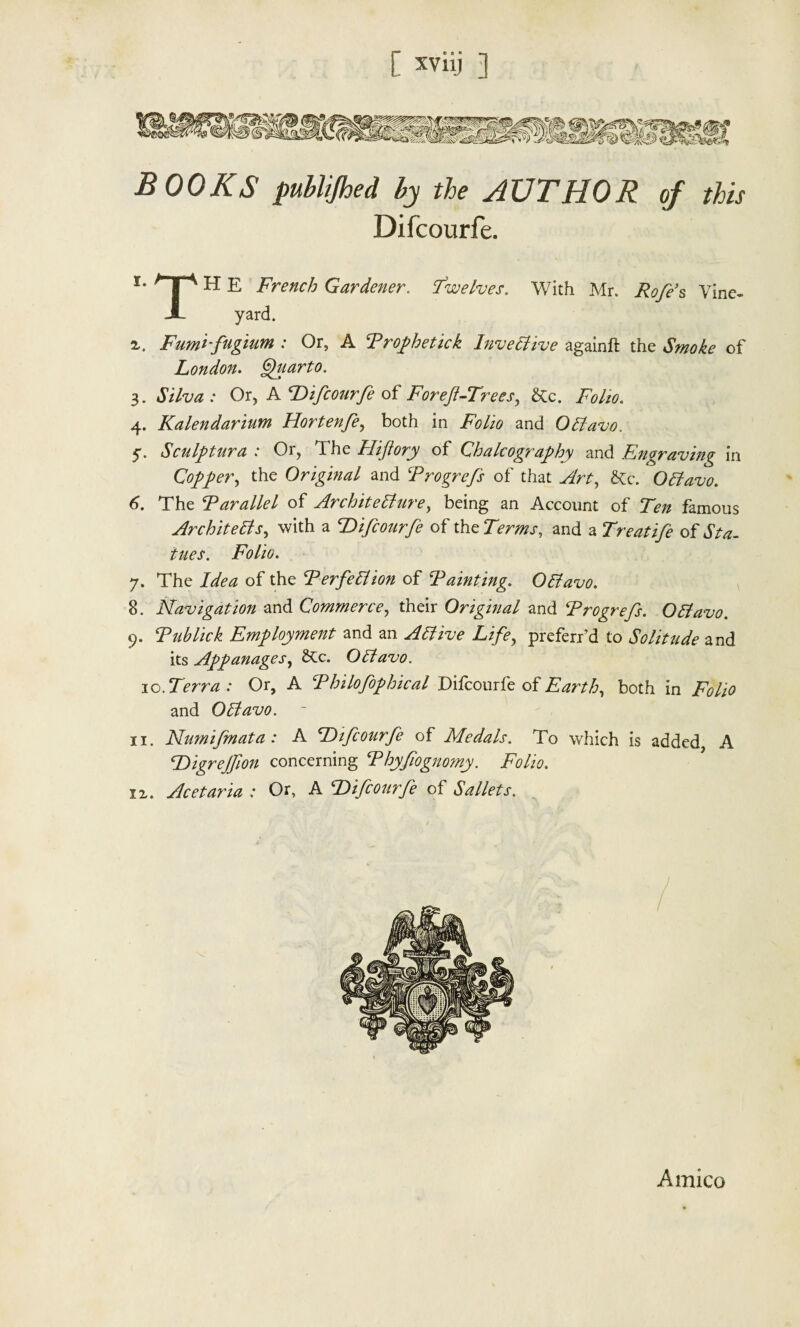 [ xviij ]
BOOKS publiſhed by the AUTHOR of this
Diſcourſe.
1. THE French Gardener. Twelves. With Mr. Roſe's Vine-
yard.
2. Fumi-fugium : Or, A Prophetick Invective againſt the Smoke of
London. Quarto.
3. Silva : Or, A Diſcourſe of Foreſt-Trees, &c. Folio.
4. Kalendarium Hortenſe, both in Folio and Octavo.
5. Sculptura : Or, The Hiſtory of Chalcography and Engraving in
Copper, the Original and Progreſs of that Art, &c. Octavo.
6. The Parallel of Architecture, being an Account of Ten famous
Architects, with a Diſcourſe of the Terms, and a Treatiſe of Sta-
tues. Folio.
7. The Idea of the Perfection of Painting. Octavo.
8. Navigation and Commerce, their Original and Progreſs. Octavo.
9. Publick Employment and an Active Life, preferr'd to Solitude and
its Appanages, &c. Octavo.
10. Terra : Or, A Philoſophical Diſcourſe of Earth, both in Folio
and Octavo.
11. Numiſmata : A Diſcourſe of Medals. To which is added, A
Digreſſion concerning Phyſiognomy. Folio.
12. Acetaria : Or, A Diſcourſe of Sallets.
Amico